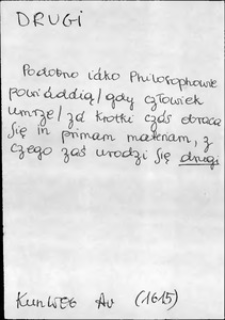 DRUGI
Podobno iáko Philosophowie
powiáddią/ gdy człowiek
umrze/ zá krotki czás obraca
się in primam materiam, z
czego zaś urodzi się drugi
KunWOB Av (1615)